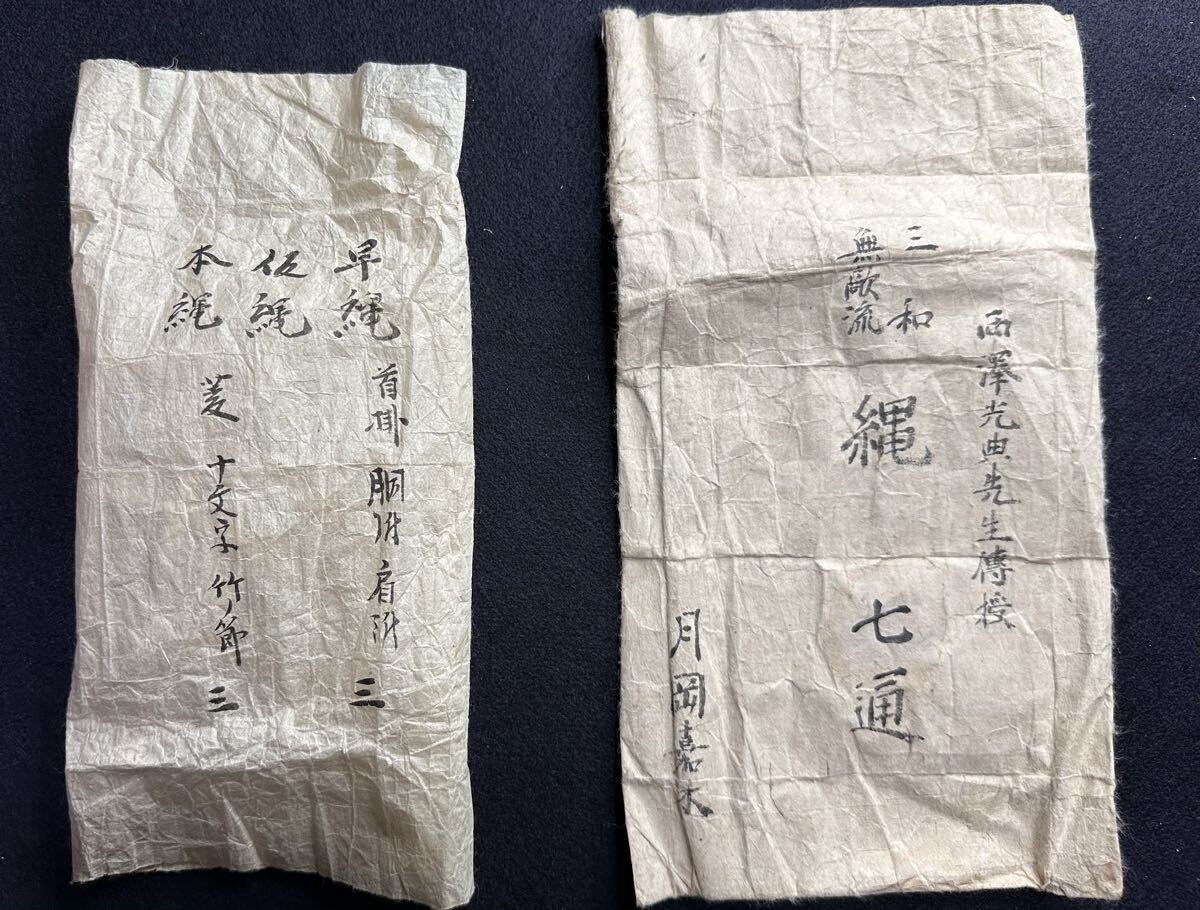 西澤光典先生傳授
三和
無歒流
縄 七通
月岡嘉
早縄
首掛 胴附 肩附 三
仮縄
本縄
菱 十文字 竹ノ節 三